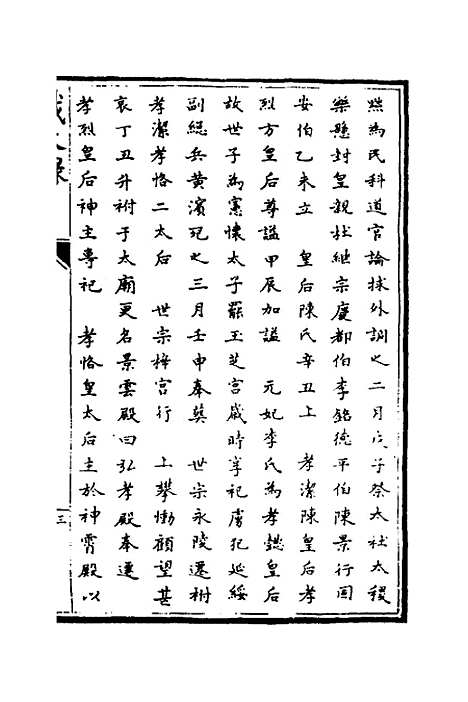 然為民科道官論捄外調之二月戊子祭太社太稷
樂懸封皇親杜繼宗慶都伯李銘德平伯陳景行固
安伯乙未立　皇后陳氏辛丑上　孝潔陳皇后孝
烈方皇后尊謚甲辰加謚　元妃李氏為孝懿皇后
故世子為憲懷太子罷玉芝宮歲時享祀虜犯延綏
副總兵黃濱死之三月壬申奉葬　世宗永陵遷祔
孝潔孝恪二太后　世宗梓宮行　上攀慟顧望甚
哀丁丑升祔于太廟更名景雲殿曰弘孝殿奉遷
孝烈皇后神主專祀　孝恪皇太后主於神霄殿以
三